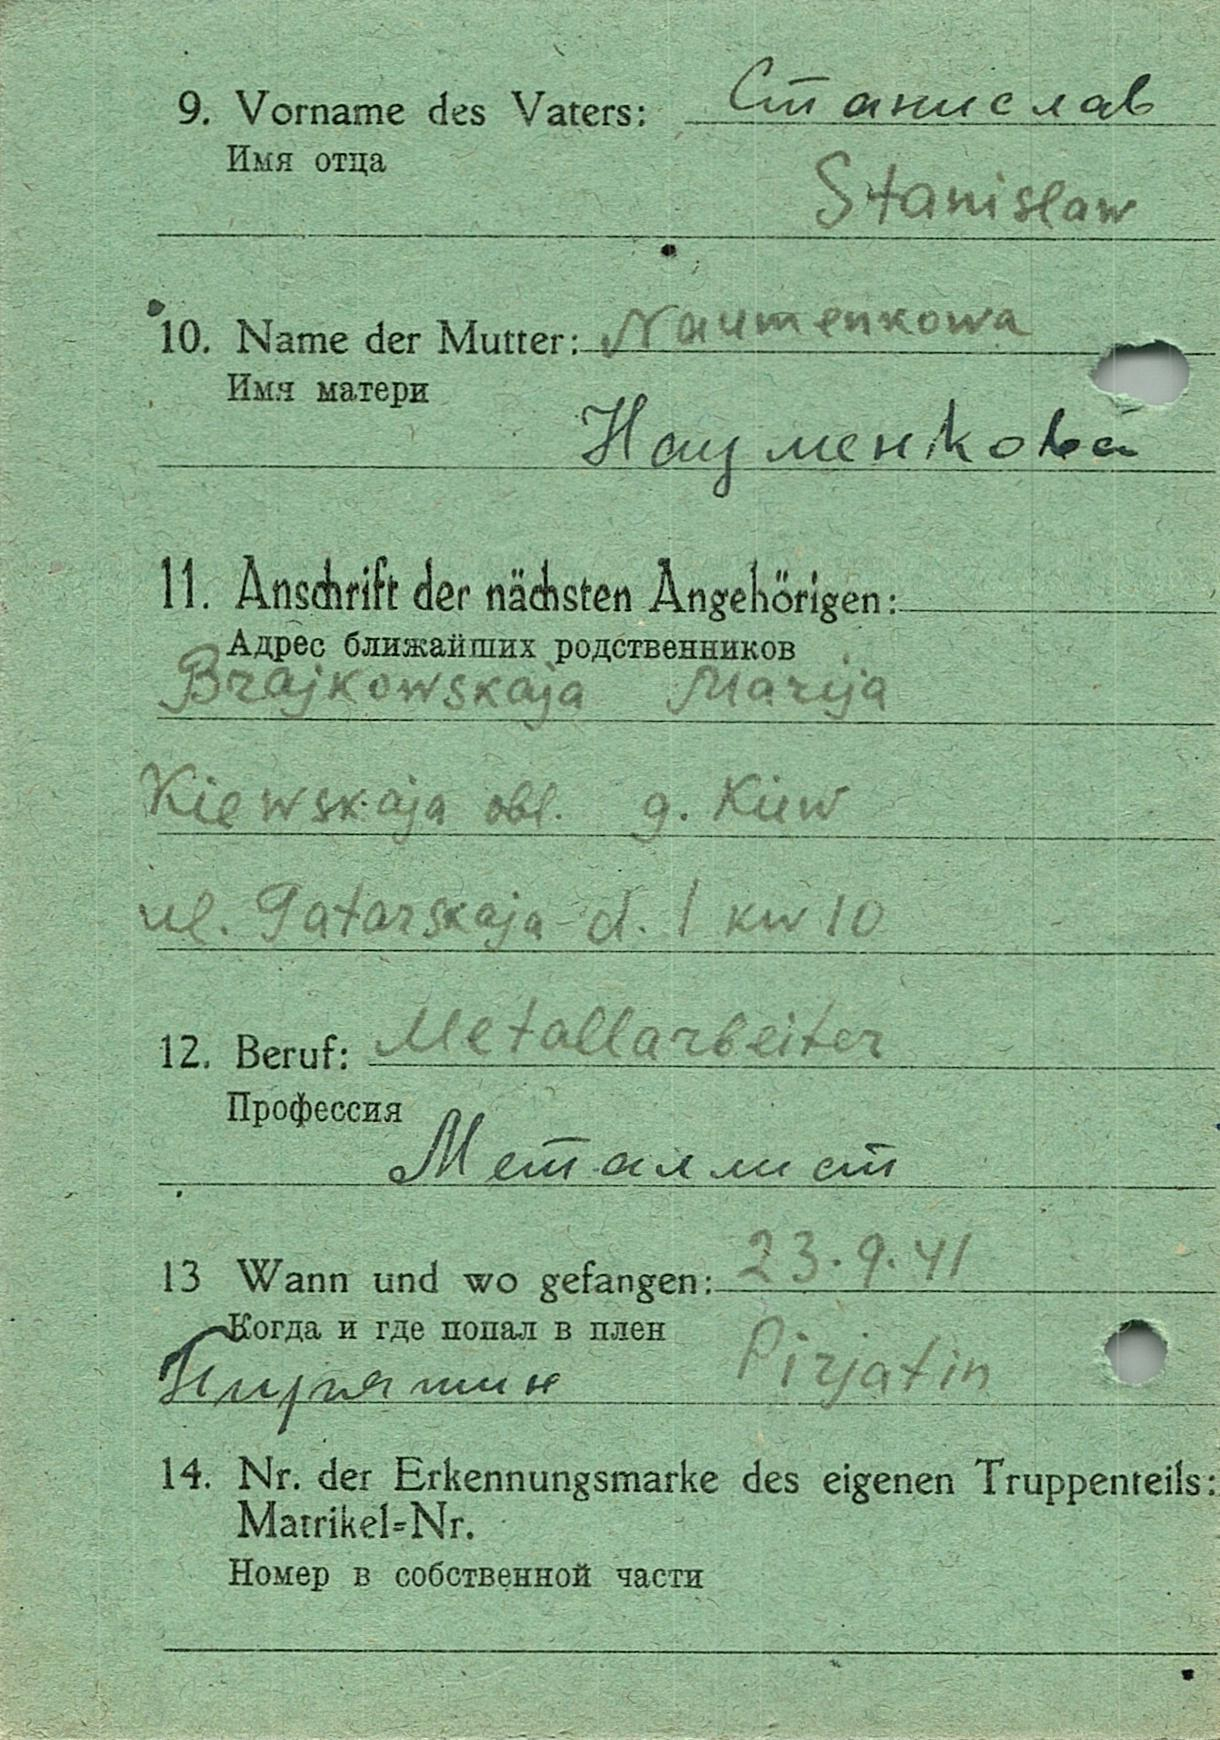 9. Vorname des Vaters: Станислав
Имя отца
Stanislaw
10. Name der Mutter: Naumenkowa
Имя матери
Науменкова
11. Anschrift der nächsten Angehörigen:
Адрес ближайших родственников
Brajkowskaja Marija
Kiewskaja obl. g. Kiew
ul. Tatarskaja d. 1 kw 10
12. Beruf: Metallarbeiter
Профессия
Металлист
13 Wann und wo gefangen: 23.9.41
Когда и где попал в плен
Пирятин Pirjatin
14. Nr. der Erkennungsmarke des eigenen Truppenteils:
Matrikel=Nr.
Номер в собственной части